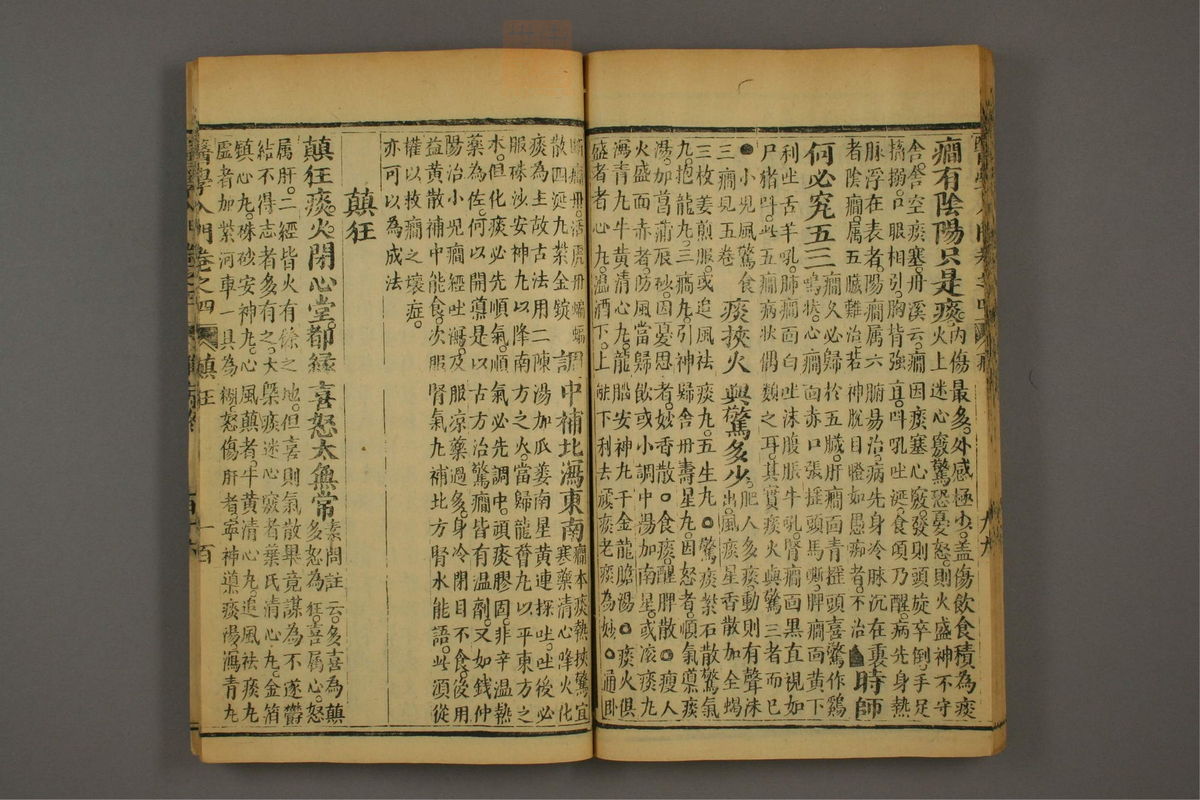 癇有陰陽只是痰內傷最多外感極少蓋傷飲食積為痰
火上迷心竅驚恐憂怒則火盛神不守
舍舍空痰塞丹溪云癇因痰塞心竅發則頭旋卒倒手足
搐搦口眼相引胸背強直叫吼吐涎食頃乃醒病先身熱
脉浮在表者陽癇属六腑易治病先身冷脉沉在裏
者陰癇属五臟難治若神脫目瞪如愚痴者不治時師
何必究五三癇久必歸於五臟肝癇面青搖頭喜驚作鷄
鳴狀心癇面赤口張搖頭馬嘶脾癇面黃下
利吐舌羊吼肺癇面白吐沫腹脹牛吼腎癇面黑直視如
尸猪叫此五癇病状偶類之耳其實痰火與驚三者而已
●小兒風驚食
三癇見五卷
痰挾火與驚多少肥人多痰動則有聲沫
出風痰星香散加全蝎
三枚姜煎服或追風祛痰丸五生丸○驚痰紫石散驚氣
丸抱龍丸三癇丸引神歸舍丹壽星丸因怒者順氣導痰
湯加菖蒲辰砂因憂思者妙香散○食痰醒脾散○瘦人
火盛面赤者防風當歸飲或小調中湯加南星或滚痰丸
瀉青丸牛黃清心丸龍腦安神丸千金龍膽湯○痰火俱
盛者者心丸溫酒下上能下利去頑痰老痰為妙○通用
癇丹活虎丹蝙蝠
散四涎丸紫金錠
調中補北瀉東南癇本痰熱挾驚宜
寒藥清心降火化
痰為主故古法用二陳湯加瓜姜南星黃連探吐吐後必
服硃沙安神丸以降南方之火當歸龍薈丸以平東方之
木但化痰必先順氣順氣必先調中頑痰膠固非辛溫熱
藥為佐何以開導是以古方治驚癇皆有温劑又如錢仲
陽治小兒癇經吐瀉及服凉藥過多身冷閉目不食後用
益黃散補中能食次服腎氣丸補北方腎水能語此須從
權以救癇之壞症
亦可以為成法
顛狂
顛狂痰火閉心堂都緣喜怒太無常素問註云多喜為顛
多怒為狂喜属心怒
属肝二經皆火有餘之地但喜則氣散畢竟謀為不遂鬱
結不得志者多有之大槩痰迷心竅者葉氏清心丸金箔
鎮心丸硃砂安神丸心風顛者牛黃清心丸追風祛痰丸
虛者加紫河車一具為糊怒傷肝者寧神導痰湯瀉青丸
醫學入門卷之四
顛狂
一百